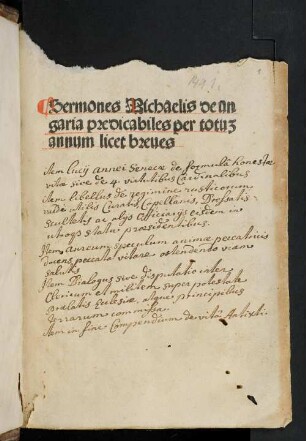 Sermones Michaelis de un
garia predicabiles per totuz
annum licet breues
Item Lucij annei Senecæ de formula honestæ
vitæ sive de 4. virtutibus Cardinalibus
Item libellus de regimine rusticorum
valde utilis Curatis Capellanis,
Scultetis ac alijs officiarijs eisdem in
utroqs statu præsidentibus.
Item Aureum speculum animæ peccatricis
docens peccata vitare ostendendo viam
salutis
Item Dialogus sive disputatio inter
Clericum et militem super potestate
prælatis Ecclesiæ, atque principibus
terrarum commissa.
Item in fine Compendium de vita Antixti.